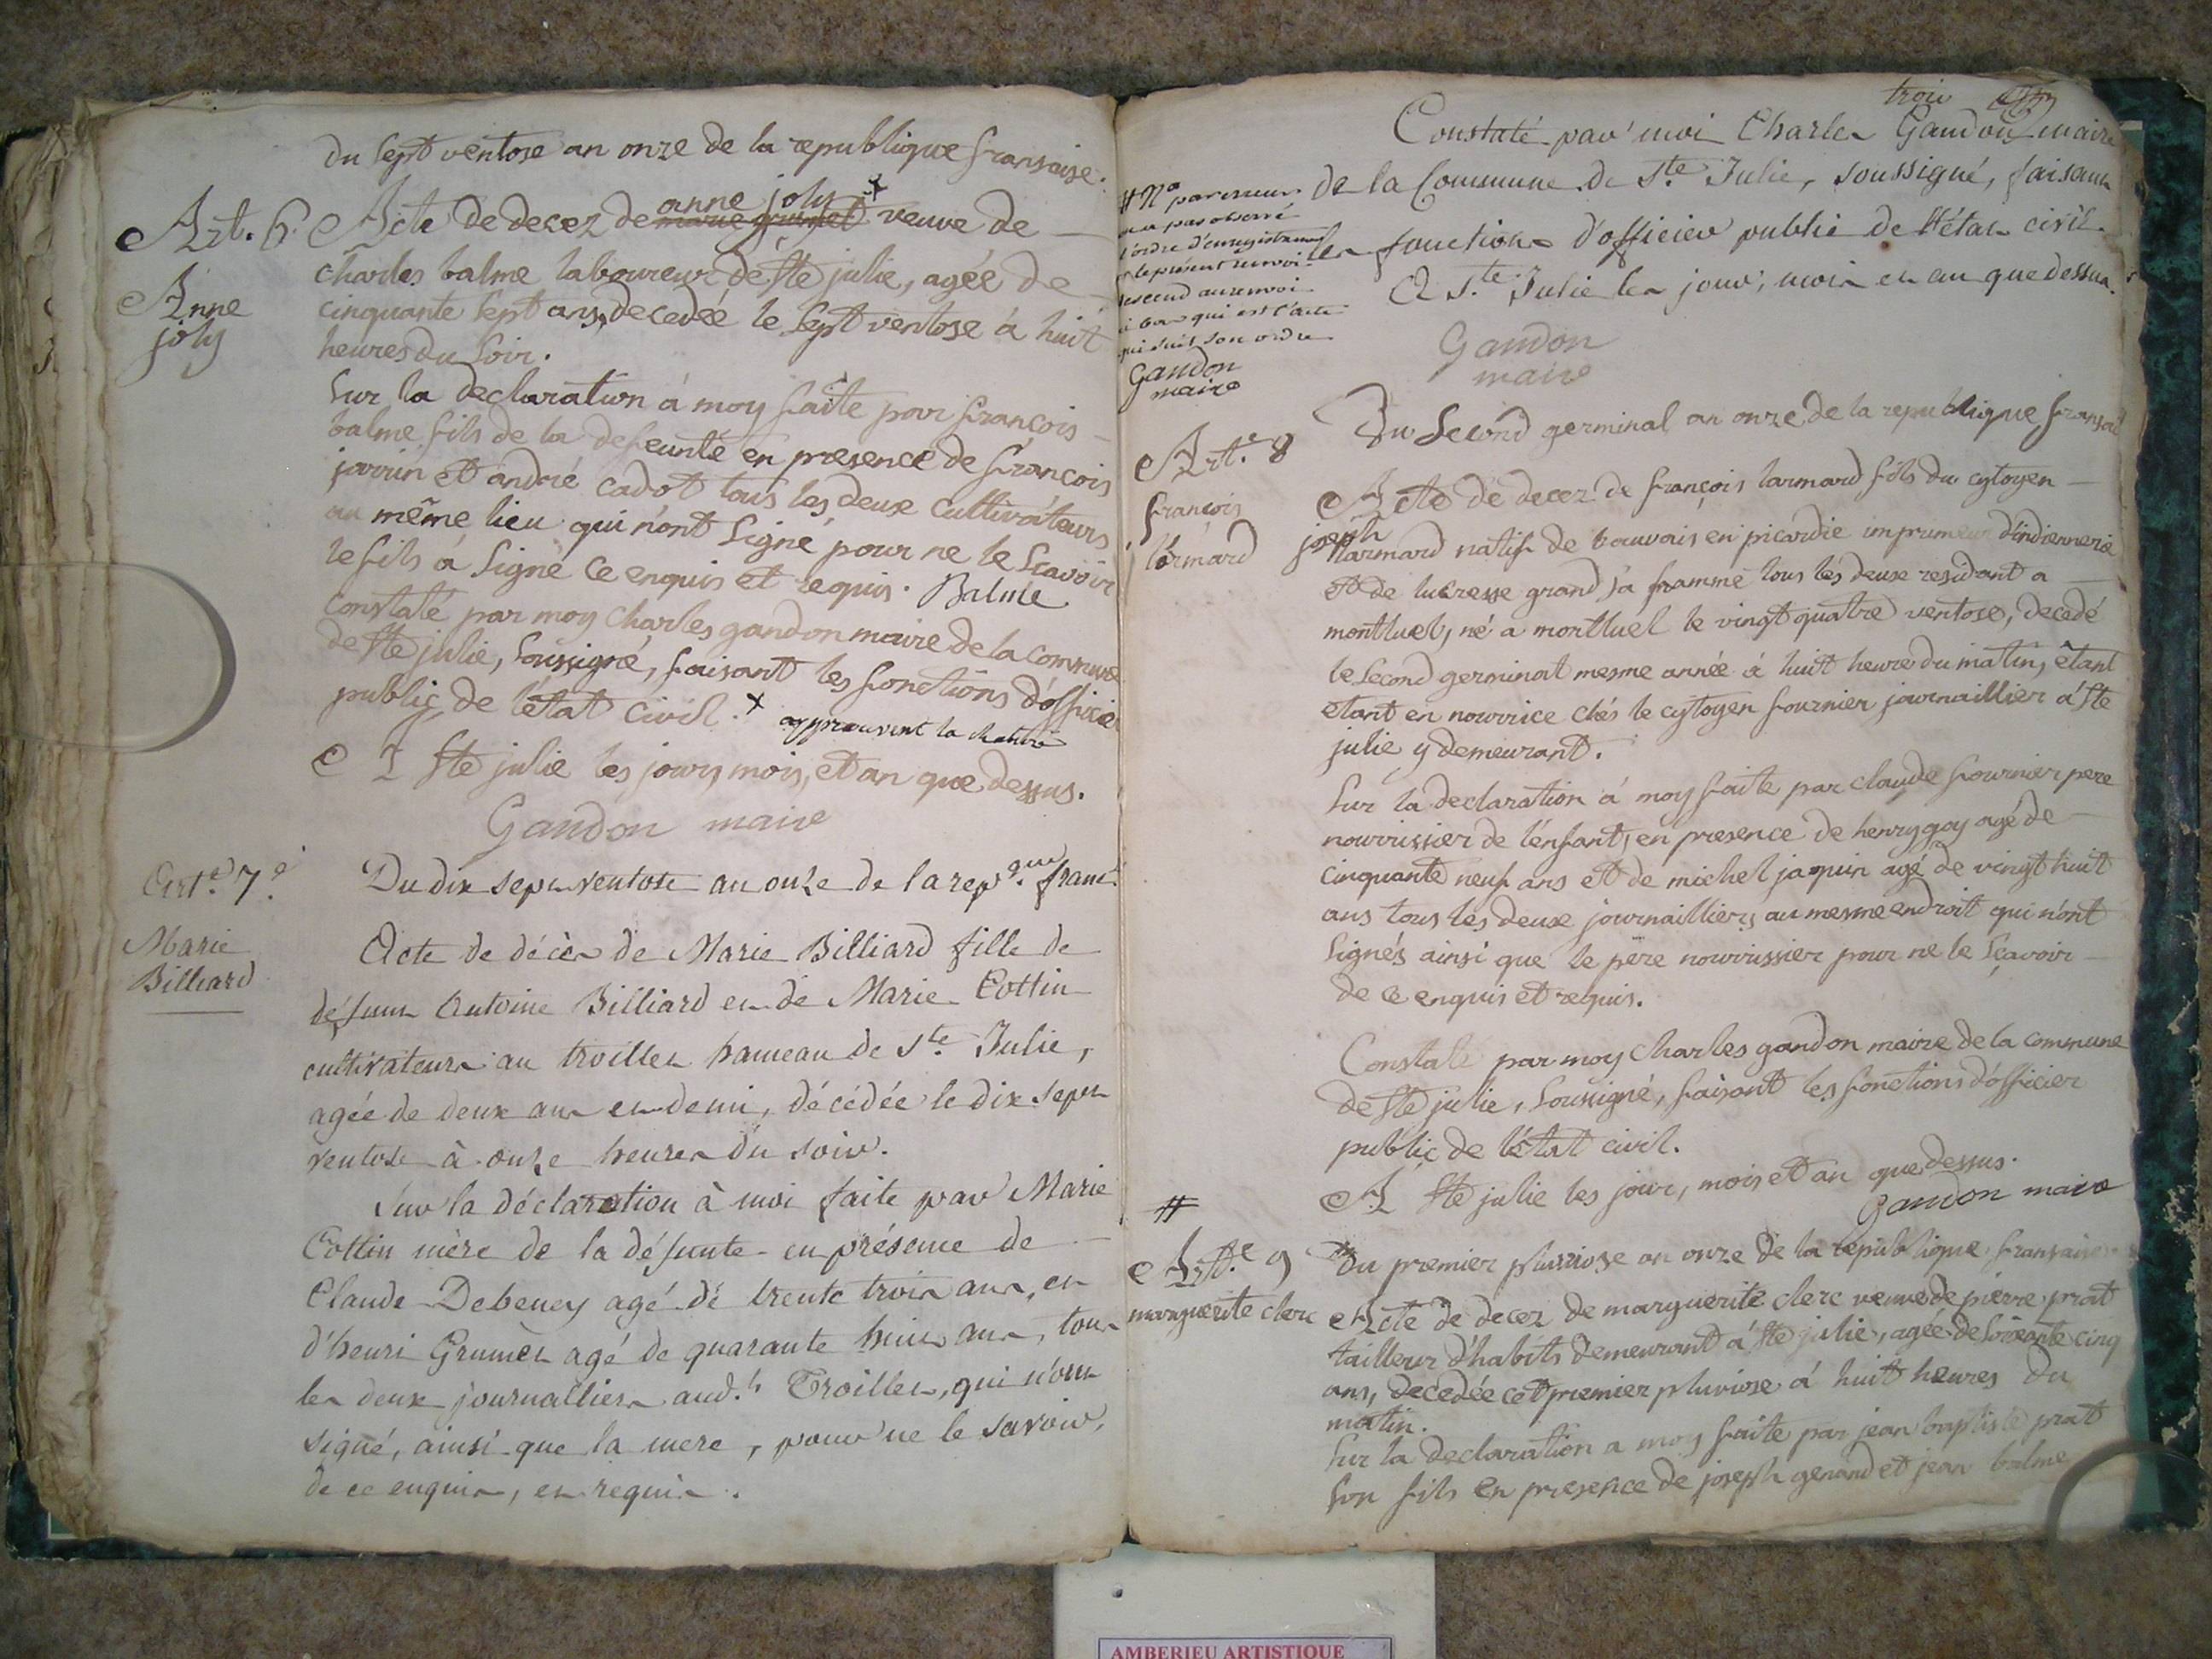 du sept ventose an onze de la republique fransaise.
Art. 6.
Anne
joly
Acte de decez de anne joly veuve de
charles balme laboureur de Ste julie, agée de
cinquante sept ans, decedée le sept ventose á huit
heures du soir.
Sur la declaration á moy faite par françois
balme fils de la defeunte en presence de françois
jarrin et andré cadot tous les deux cultivateurs
au même lieu qui n'ont signé pour ne le scavoir
le fils á signé ce enquis et requis. Balme
Constaté par moy Charles gandon maire de la commune
de Ste julie, soussigné, faisant les fonctions d'officier
public de l'état civil. x
A Ste julie les jours, mois, et an que dessus.
Gandon maire
Arte. 7e.
Marie
Billiard
Du dix sept ventose an onze de la repque. franc.
Acte de décès de Marie Billiard fille de
défunt Antoine Billiard et de Marie Cottin
cultivateurs au troillet hameau de Ste. Julie,
agée de deux ans et demi, décédée le dix sept
ventose à onze heures du soir.
Sur la déclaration à moi faite par Marie
Cottin mère de la défunte en présence de
Claude Debeney agé de trente trois ans, et
d'henri Grumet agé de quarante huit ans, tous
les deux journalliers aud.t Troillet, qui n'ont
signé, ainsi que la mere, pour ne le savoir,
de ce enquis, et requis.
trois
Constaté par moi Charles Gandon maire
de la Commune de Ste. Julie, soussigné, faisant
les fonctions d'officier public de l'état civil.
A Ste. Julie les jour, mois et an que dessus.
Gandon
maire
# Na par erreur
on a pas observé
l'ordre d'enregistrement
le présent renvoi
descend au renvoi
á bas qui est l'acte
qui suit son ordre
Gandon
maire
Du Second germinal an onze de la republique fransai
Arte. 8
françois
larmard
Acte de decez de françois larmard fils du cytoyen
joseph larmard natif de bauvais en picardie imprimeur d'indiennerie
et de lucresse grand sa framme tous les deux residant a
montluel, né a montluel le vingt quatre ventose, decedé
le second germinal mesme année á huit heure du matin, êtant
etant en nourrice chés le cytoyen fournier journaillier á Ste
julie y demeurant.
Sur la declaration á moy faite par claude fournier pere
nourrissier de l'enfant, en presence de henry goy agé de
cinquante neuf ans et de michel jaquin agé de vingt huit
ans tous les deux journailliers au mesme endroit qui n'ont
signés ainsi que le père nourrissier pour ne le sçavoir
de ce enquis et requis.
Constaté par moy Charles gandon maire de la commune
de Ste julie, soussigné, faisant les fonctions d'officier
public de l'état civil.
A Ste julie les jour, mois et an que dessus.
Gandon maire
#
Arte. 9
marguerite clerc
Du premier pluviose an onze de la republique fransaise
Acte de decez de marguerite clerc veuve de pierre prat
tailleur d'habits demeurant á Ste julie, agée de soixante cinq
ans, decedée cet premier pluviose á huit heures du
matin.
Sur la declaration a moy faite par jean baptiste prat
son fils en presence de joseph genand et jean balme
AMBERIEU ARTISTIQUE